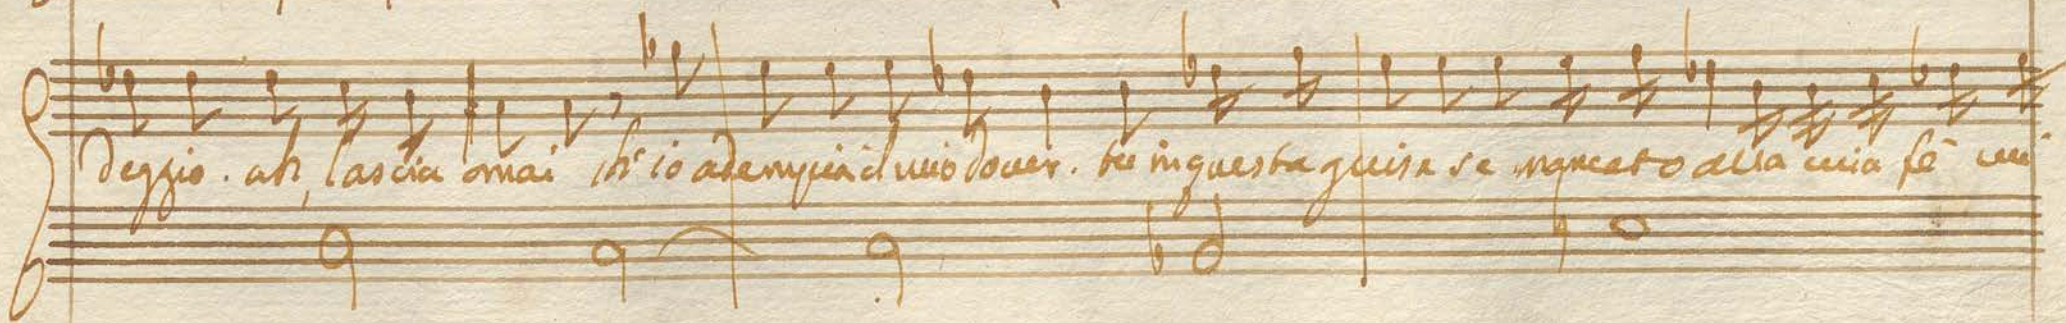 deggio. ah, lascia omai ch'io adempia il mio dover. tu in questa guisa se mancato alla mia fé